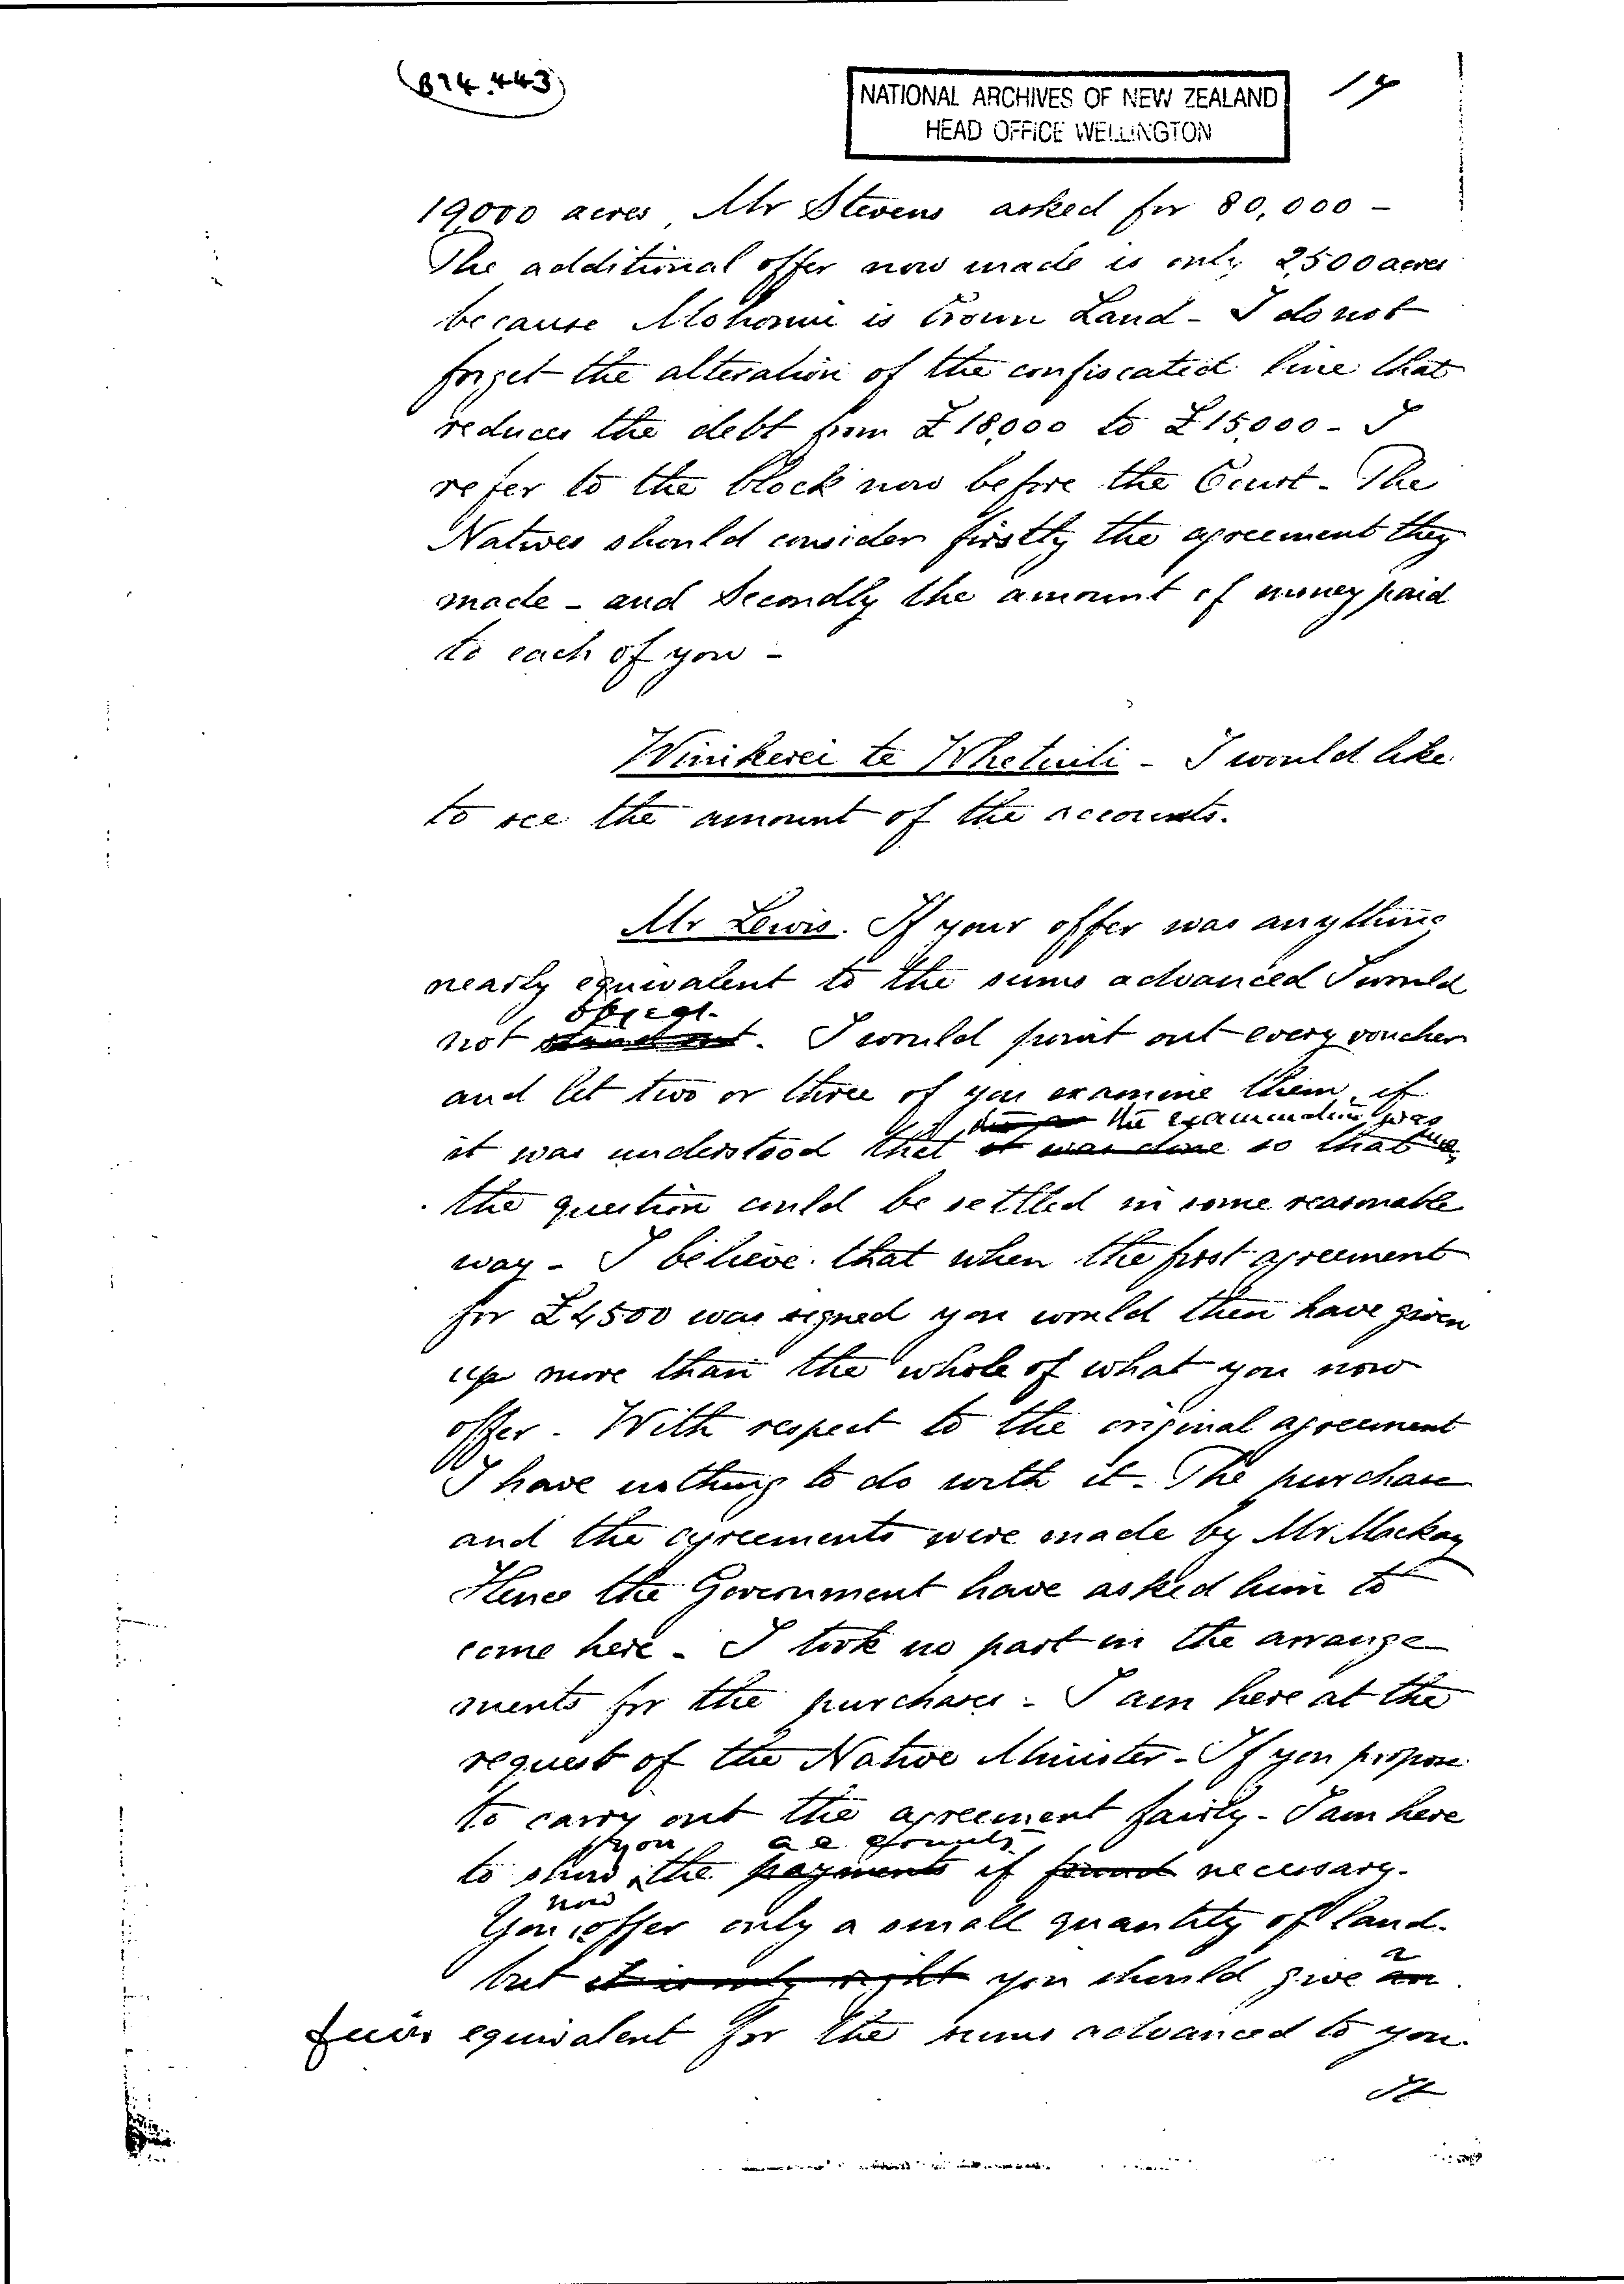 (B74.443)
NATIONAL ARCHIVES OF NEW ZEALAND
HEAD OFFICE WELLINGTON
17
19,000 acres, Mr Stevens asked for 80,000 -
The additional offer now made is only 2,500 acres
because is Crown Land - I do not
forget the alteration of the confiscated line that
reduces the debt from £18,000 to £15,000 - I
refer to the block now before the Court - The
Natives should consider firstly the agreement they
made - and Secondly the amount of money paid
to each of you -
Winikerei te Whetuiti - I would like
to see the amount of the accounts.
Mr Lewis. If your offer was anything
nearly equivalent to the sums advanced I would
object
not stand out. I would point out every voucher
and let two or three of you examine them, if
the examination was
it was understood that it was done so that
the question could be settled in some reasonable
way - I believe that when the first agreement
for £4500 was signed you would then have given
up more than the whole of what you now
offer. With respect to the original agreement
I have nothing to do with it - The purchase
and the agreements were made by Mr Mackay
Hence the Government have asked him to
come here - I took no part in the arrange
ments for the purchases - I am here at the
request of the Native Minister - If you propose
to carry out the agreement fairly - I am here
you accounts
to show the payments if found necessary.
now
You offer only a small quantity of land.
a
but it is only right you should give an
fair equivalent for the sums advanced to you.
It